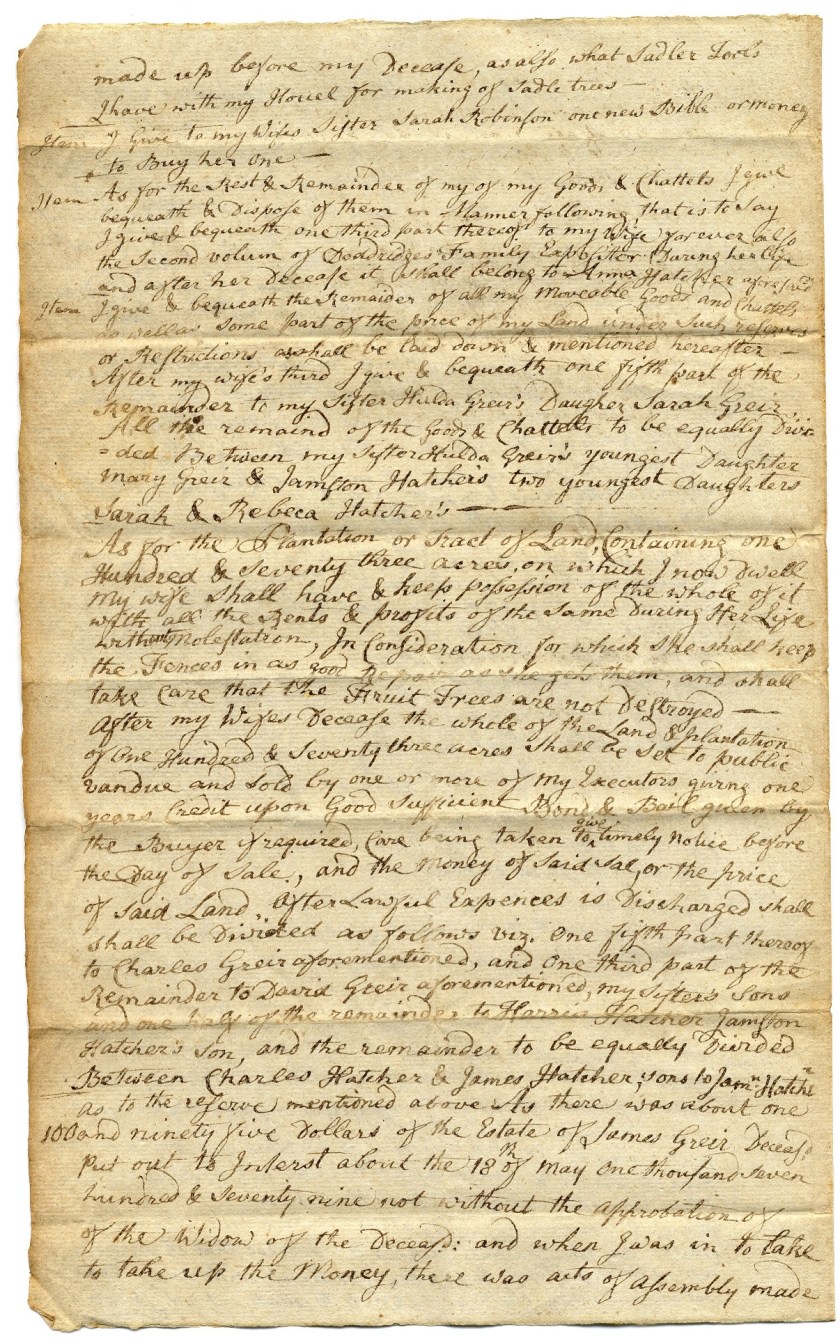 made up before my Decease, as also what Sadler Tools
I have with my Howel for making of Sadle trees —
Item I Give to my Wifes Sister Sarah Robinson one new Bible or money
to Buy her one —
Item As for the Rest & Remainder of my of my Goods & Chattels I give
bequeath & Dispose of them in Manner following, that is to Say
I give & bequeath one third part thereof to my Wife forever also
the Second volum of Doddridges Family Expositor During her life
and after her Decease it shall belong to Anna Hatcher aforesaid
Item I give & bequeath the Remaider of all my Moveable Goods and Chattels
as well as some part of the price of my Land under Such reserves
or Restrictions as shall be laid down & mentioned hereafter —
After my wife's third I give & bequeath one fifth part of the
Remainder to my Sister Hulda Greir's Daugher Sarah Greir,
All the remaind of the Goods & Chattels to be equally Divi=
=ded Between my Sister Hulda Greir's youngest Daughter
Mary Greir & Jamston Hatcher's two youngest Daughters
Sarah & Rebeca Hatcher's —
As for the Plantation or Tract of Land, Containing one
Hundred & Seventy three acres, on which I now Dwell
My wife shall have & keep possession of the whole of it
with all the Rents & profits of the Same During Her Life
without Molestation, In Consideration for which she shall keep
the Fences in as good Repair as she gets them, and shall
take Care that the Fruit Trees are not Destroyed —
After my Wifes Decease the whole of the Land & Plantation
of One Hundred & Seventy three acres shall be set to public
vandue and sold by one or more of my Executors giving one
years Credit upon Good Sufficient Bond & Bail given by
the Buyer if required, Care being taken to give timely Notice before
the Day of Sale, and the Money of Said Sae, or the price
of said Land, After Lawful Expences is Discharged shall
shall be Divided as follows viz. One fifth part thereof
to Charles Greir aforementioned, and One third part of the
Remainder to David Greir aforementioned, my Sister's Sons
and one half of the remainder to Harris Hatcher Jamston
Hatcher's Son, and the remainder to be equally Divided
Between Charles Hatcher & James Hatcher, sons to Jamn. Hatcher
as to the reserve mentioned above As there was about one
100 and ninety five Dollars of the Estate of James Greir Deceasd
Put out to Interst about the 18th of May One thousand seven
hundred & Seventy nine not without the approbation of
of the Widow of the Deceasd: and when I was in to take
to take up the Money, there was acts of Assembly made